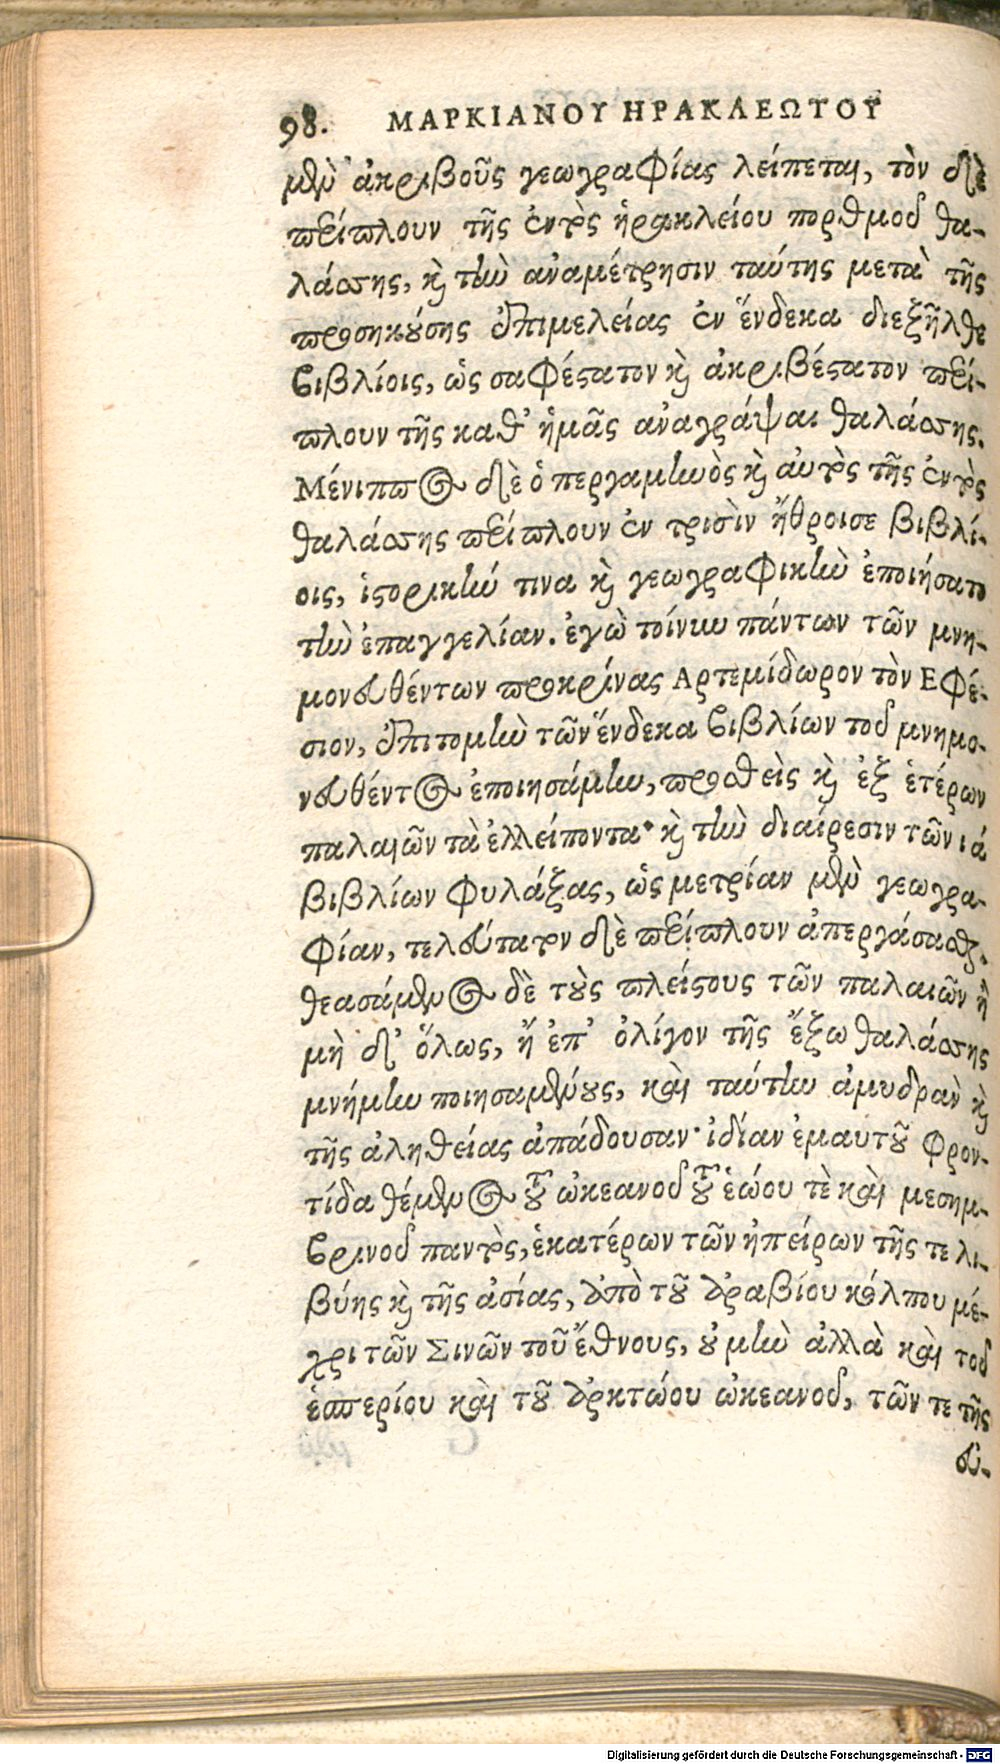 98. ΜΑΡΚΙΑΝΟΥ ΗΡΑΚΛΕΩΤΟΥ
μὲν ἀκριβοῦς γεωγραφίας λείπεται, τὸν δὲ
περίπλουν τῆς ἐντὸς ἡρακλείου πορθμοῦ θα-
λάσσης, καὶ τὴν ἀναμέτρησιν ταύτης μετὰ τῆς
προσηκούσης ἐπιμελείας ἐν ἕνδεκα διεξῆλθε
βιβλίοις, ὡς σαφέστατον καὶ ἀκριβέστατον περί-
πλουν τῆς καθ' ἡμᾶς ἀναγράψαι θαλάσσης.
Μένιππος δὲ ὁ περγαμηνὸς καὶ αὐτὸς τῆς ἐντὸς
θαλάσσης περίπλουν ἐν τρισὶν ἤθροισε βιβλί-
οις, ἱστορικήν τινα καὶ γεωγραφικὴν ἐποιήσατο
τὴν ἐπαγγελίαν. ἐγὼ τοίνυν πάντων τῶν μνη-
μονευθέντων προκρίνας Αρτεμίδωρον τὸν Εφέ-
σιον, ἐπιτομὴν τῶν ἕνδεκα βιβλίων τοῦ μνημο-
νευθέντος ἐποιησάμην, προσθεὶς καὶ ἐξ ἑτέρων
παλαιῶν τὰ ἐλλείποντα· καὶ τὴν διαίρεσιν τῶν ιά
βιβλίων φυλάξας, ὡς μετρίαν μὲν γεωγρα-
φίαν, τελεύτατον δὲ περίπλουν ἀπεργάσασθαι.
θεασάμενος δὲ τοὺς πλείστους τῶν παλαιῶν ἢ
μὴ δι' ὅλως, ἢ ἐπ' ὀλίγον τῆς ἔξω θαλάσσης
μνήμην ποιησαμένους, καὶ ταύτην ἀμυδρὰν καὶ
τῆς ἀληθείας ἀπάδουσαν· ἰδίαν ἐμαυτοῦ φρον-
τίδα θέμενος τοῦ ὠκεανοῦ τοῦ ἑώου τὲ καὶ μεσημ-
βρινοῦ παντὸς, ἑκατέρων τῶν ἠπείρων τῆς τε λι-
βύης καὶ τῆς ἀσίας, ἀπὸ τοῦ ἀραβίου κόλπου μέ-
χρι τῶν Σινῶν τοῦ ἔθνους, οὐ μὴν ἀλλὰ καὶ τοῦ
ἑσπερίου καὶ τοῦ ἀρκτώου ὠκεανοῦ, τῶν τε τῆς
εὐ-
Digitalisierung gefördert durch die Deutsche Forschungsgemeinschaft - DFG